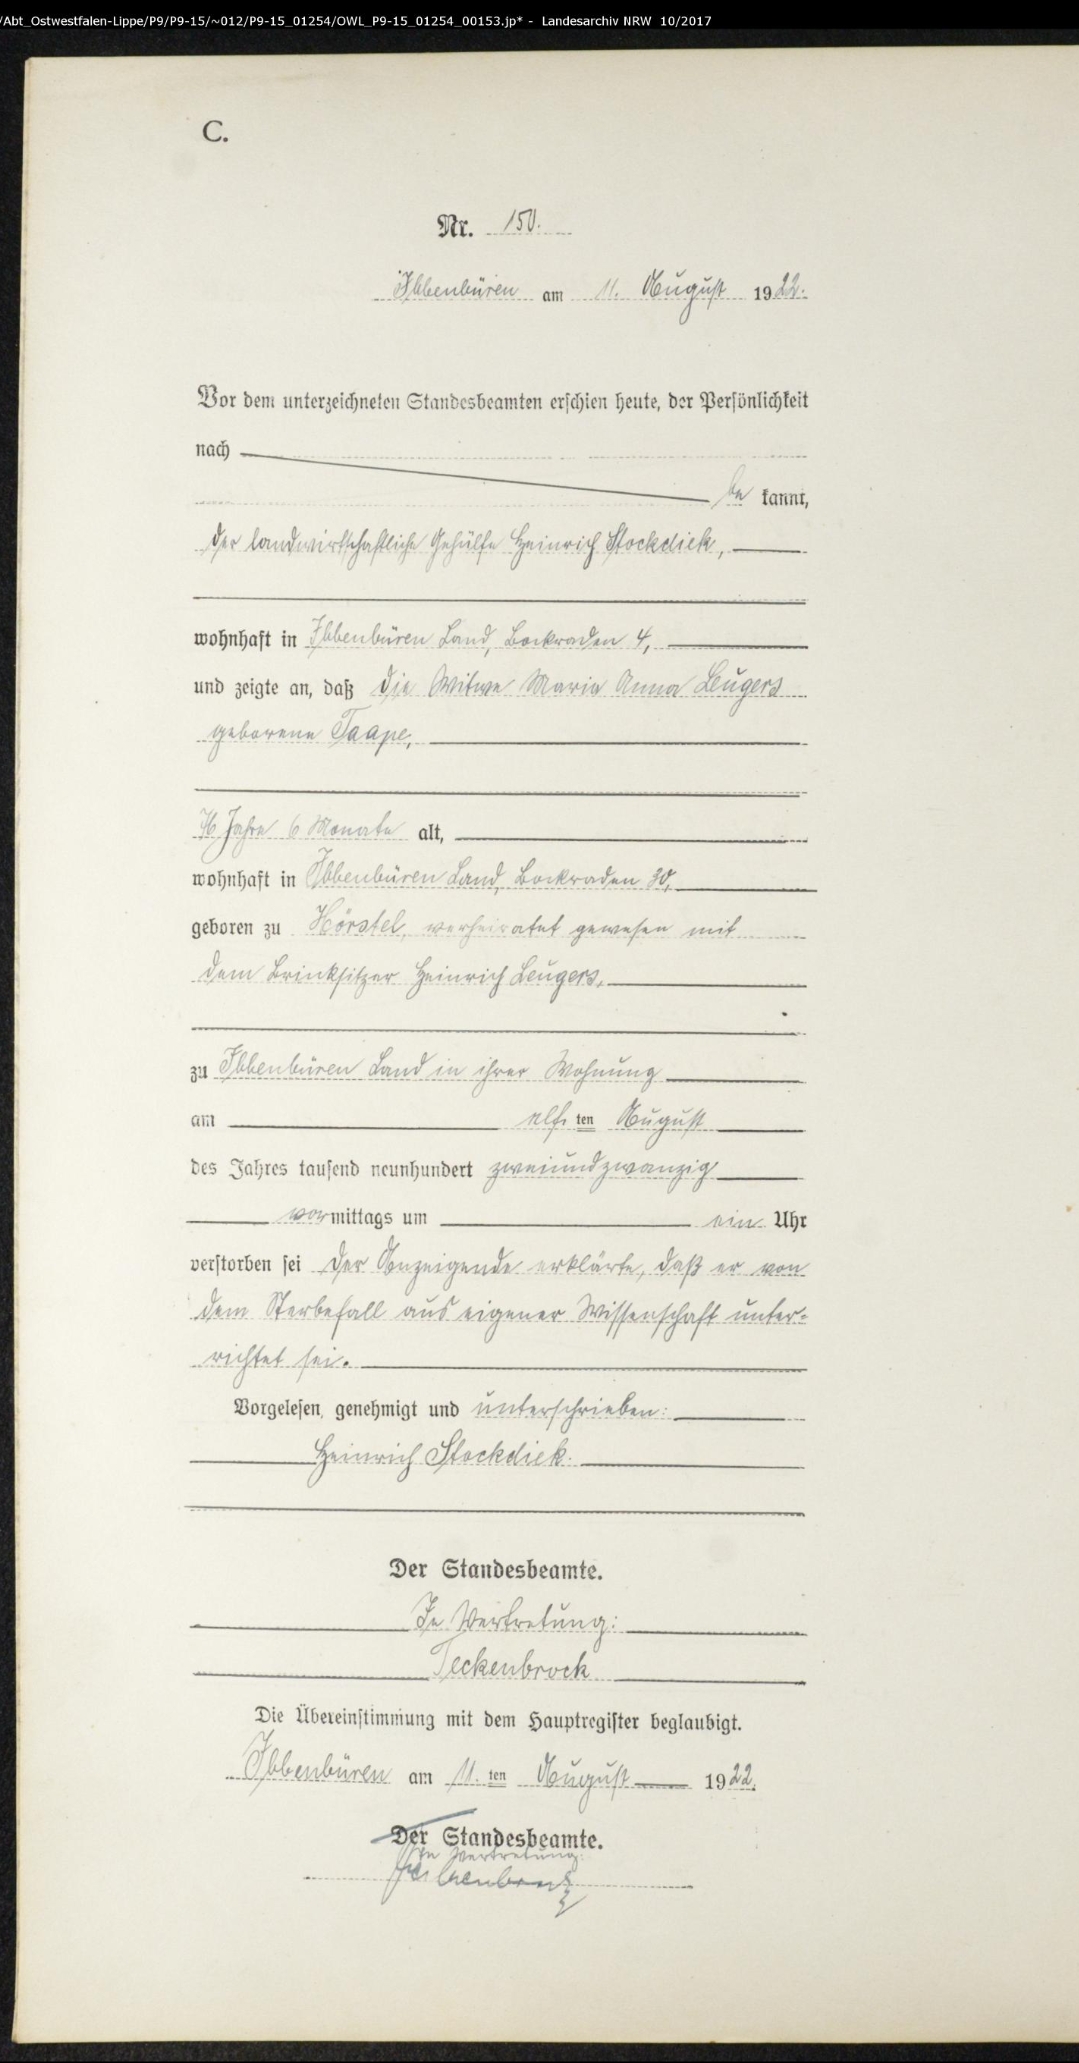 /Abt_Ostwestfalen-Lippe/P9/P9-15/~012/P9-15_01254/OWL_P9-15_01254_00153.jp* - Landesarchiv NRW 10/2017
C.
Nr. 150.
Ibbenbüren am 11. August 1922.
Vor dem unterzeichneten Standesbeamten erschien heute, der Persönlichkeit
nach
be kannt,
der landwirtschaftliche Gehülfe Heinrich Stockdiek,
wohnhaft in Ibbenbüren Land, Bockraden 4,
und zeigte an, daß die Witwe Maria Anna Leugers
geborene Taape,
76 Jahre 6 Monate alt,
wohnhaft in Ibbenbüren Land, Bockraden 30,
geboren zu Hörstel, verheiratet gewesen mit
dem Brinksitzer Heinrich Leugers,
zu Ibbenbüren Land in ihrer Wohnung
am elf ten August
des Jahres tausend neunhundert zweiundzwanzig
vormittags um ein Uhr
verstorben sei Der Anzeigende erklärte, daß er von
dem Sterbefall aus eigener Wissenschaft unter-
richtet sei.
Vorgelesen, genehmigt und unterschrieben:
Heinrich Stockdiek.
Der Standesbeamte.
In Vertretung:
Teckenbrock
Die Übereinstimmung mit dem Hauptregister beglaubigt.
Ibbenbüren am 11. ten August 1922.
Der Standesbeamte.
In Vertretung: